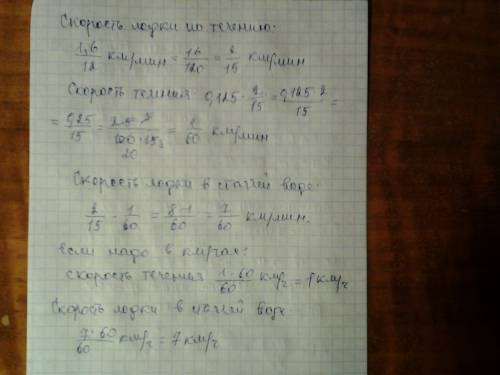 Скорость лодки по течению:
1,6/12 км/мин = 16/120 = 2/15 км/мин
Скорость течения 0,125 · 2/15 = 0,125·2/15 =
= 0,25/15 = 25/100·15 = 1/60 км/мин
20
Скорость лодки в стоячей воде:
2/15 - 1/60 = 8-1/60 = 7/60 км/мин.
если надо в км/час:
скорость течения 1·60/60 км/ч = 1 км/ч
Скорость лодки в стоячей воде
7·60/60 км/ч = 7 км/ч